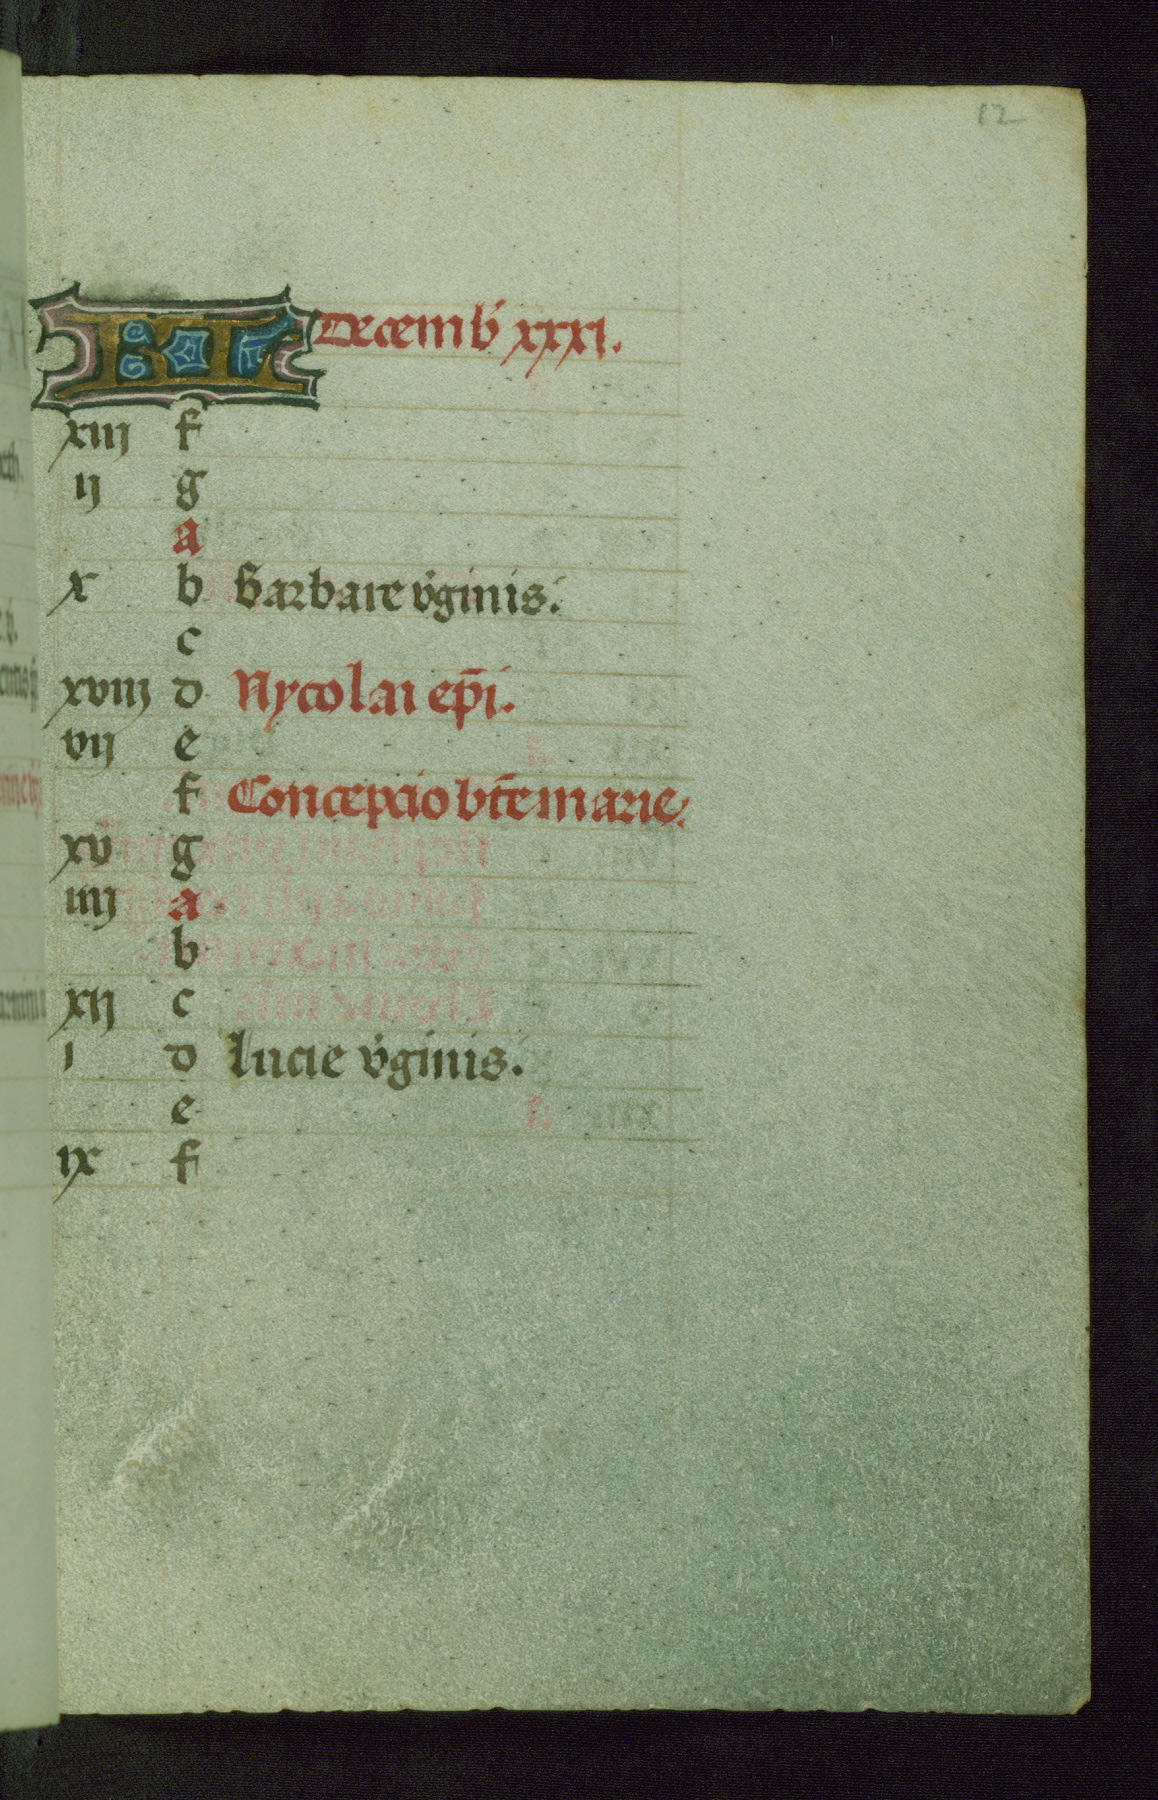 12
KL Decemb̄ xxxi.
xiii f
ii g
a
x b Barbare v̄ginis.
c
xviii d Nycolai ep̄i.
vii e
f Concepcio bt̄e marie.
xv g
iiii a
b
xii c
i d Lucie v̄ginis.
e
ix f